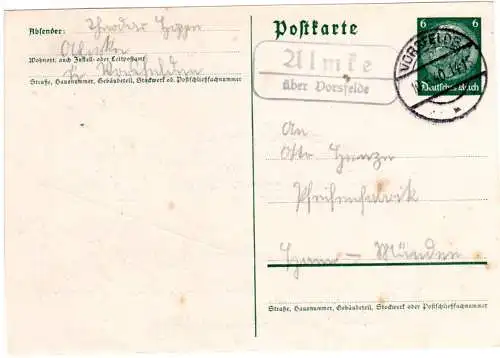 Absender: Theodor Hoppe
Almke
Wohnort, auch Zustell- oder Leitpostamt
Kr. Vorsfelde
Straße, Hausnummer, Gebäudeteil, Stockwerk od. Postschließfachnummer
Postkarte
Almke
über Vorsfelde
VORSFELDE
6 6
Deutsches Reich
An
Otto
Pfeifenfabrik
Hann - Münden
Straße, Hausnummer, Gebäudeteil, Stockwerk oder Postschließfachnummer